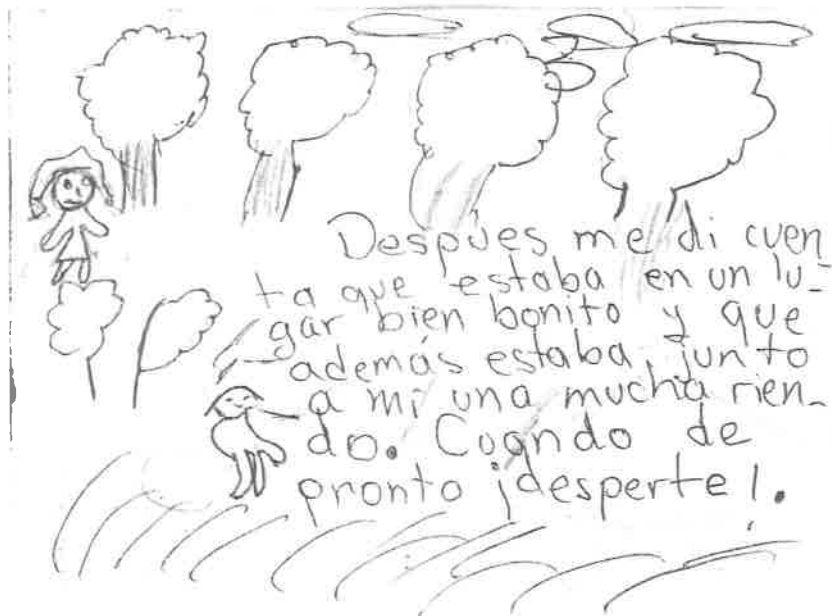 Despúes me di cuen
ta que estaba en un lu-
gar bien bonito y que
además estaba, junto
a mi una mucha rien-
do. Cuando de
pronto ¡desperte!.